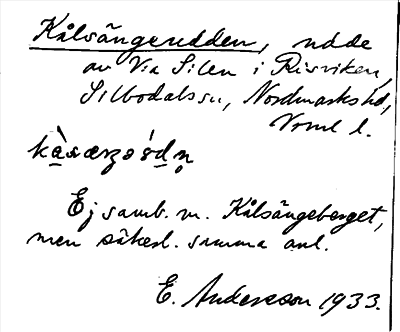 Kålsängeudden, udde
av V:a Silen i Risviken,
Silbodals sn, Nordmarks hd,
Vrml l.
Ej samb. m. Kålsängeberget,
men säkerl. samma anl.
E. Andersson 1933.